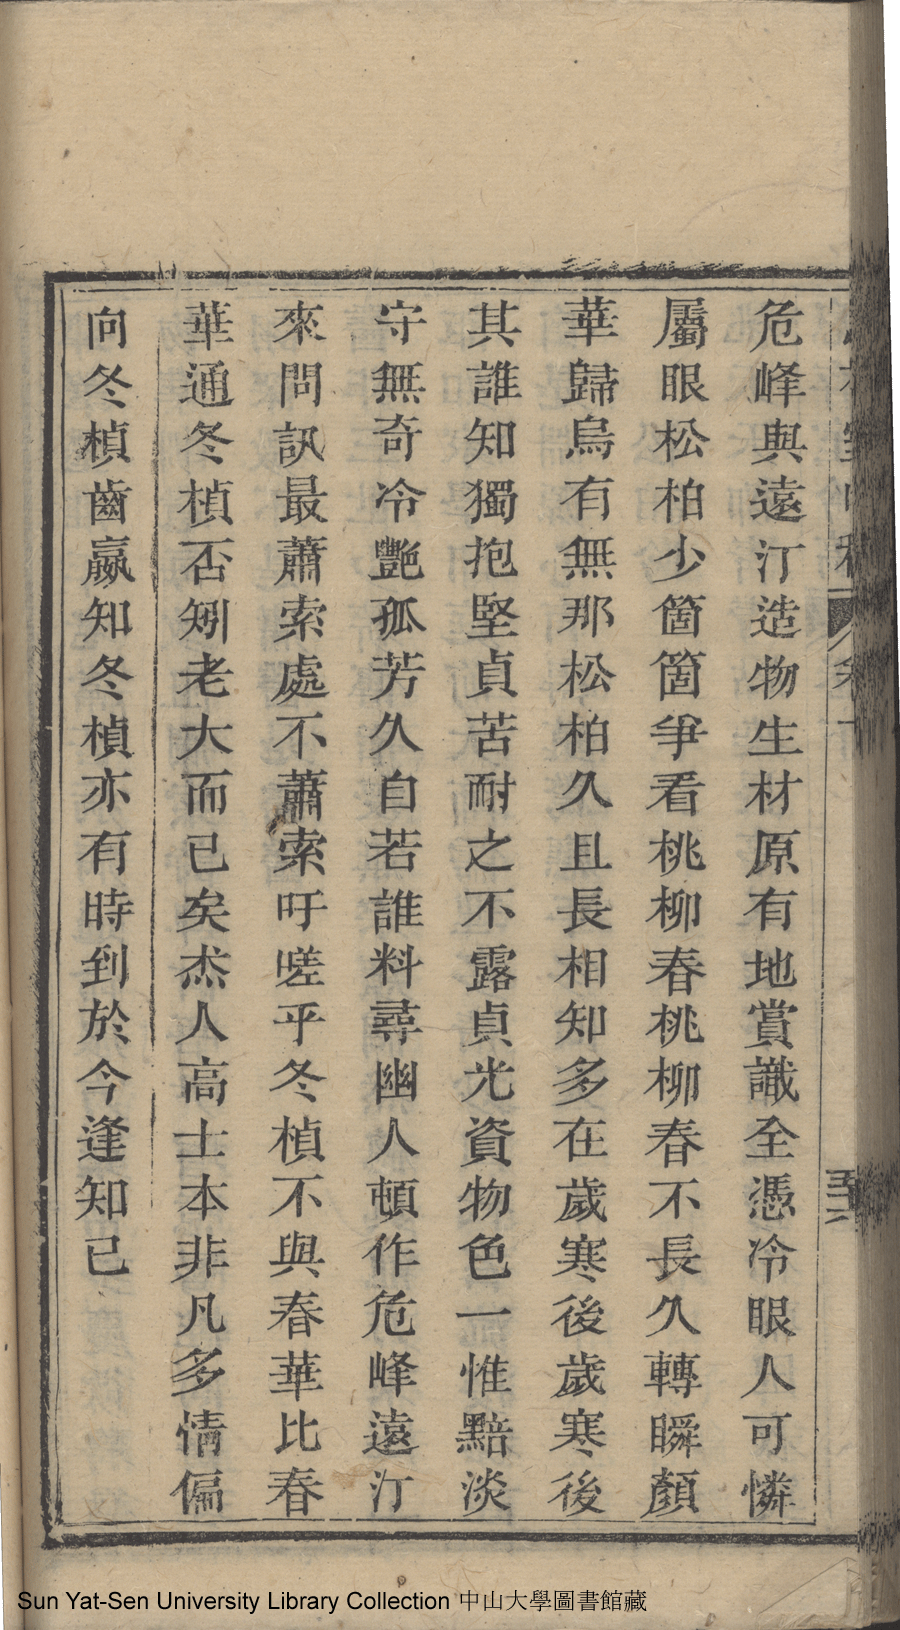 危峰與遠汀造物生材原有地賞識全憑冷眼人可憐
屬眼松柏少箇箇爭看桃柳春桃柳春不長久轉瞬顏
華歸烏有無那松柏久且長相知多在歲寒後歲寒後
其誰知獨抱堅貞苦耐之不露貞光資物色一惟黯淡
守無奇冷艷孤芳久自若誰料尋幽人頓作危峰遠汀
來問訊最蕭索處不蕭索吁嗟乎冬楨不與春華比春
華通冬楨否矧老大而已矣杰人高士本非凡多情偏
向冬楨齒嬴知冬楨亦有時到於今逢知己
Sun Yat-Sen University Library Collection 中山大學圖書館藏